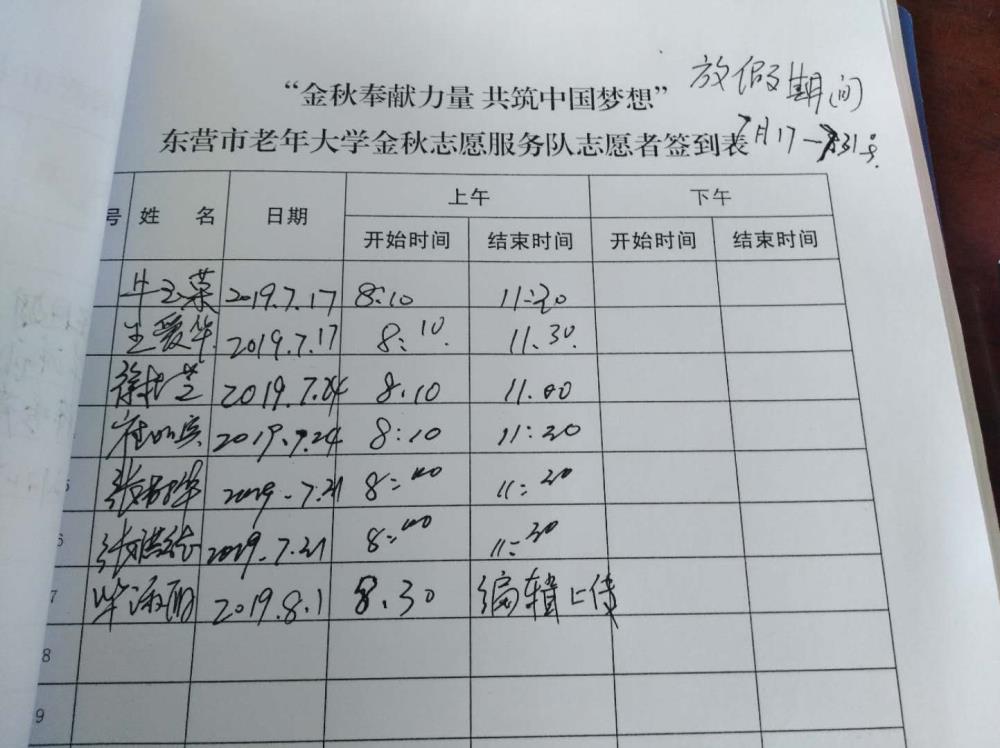 “金秋奉献力量 共筑中国梦想” 放假期间
东营市老年大学金秋志愿服务队志愿者签到表 7月17-31号
号 姓 名 日期 上午 下午
开始时间 结束时间 开始时间 结束时间
2019.7.17 8:10 11:30
王爱华 2019.7.17 8:10 11.30
2019.7.24 8.10 11.00
2019.7.24 8:10 11:30
2019-7.31 8:40 11:30
6 2019.7.31 8:40 11:30
7 毕淑丽 2019.8.1 8.30 编辑上传
8
9